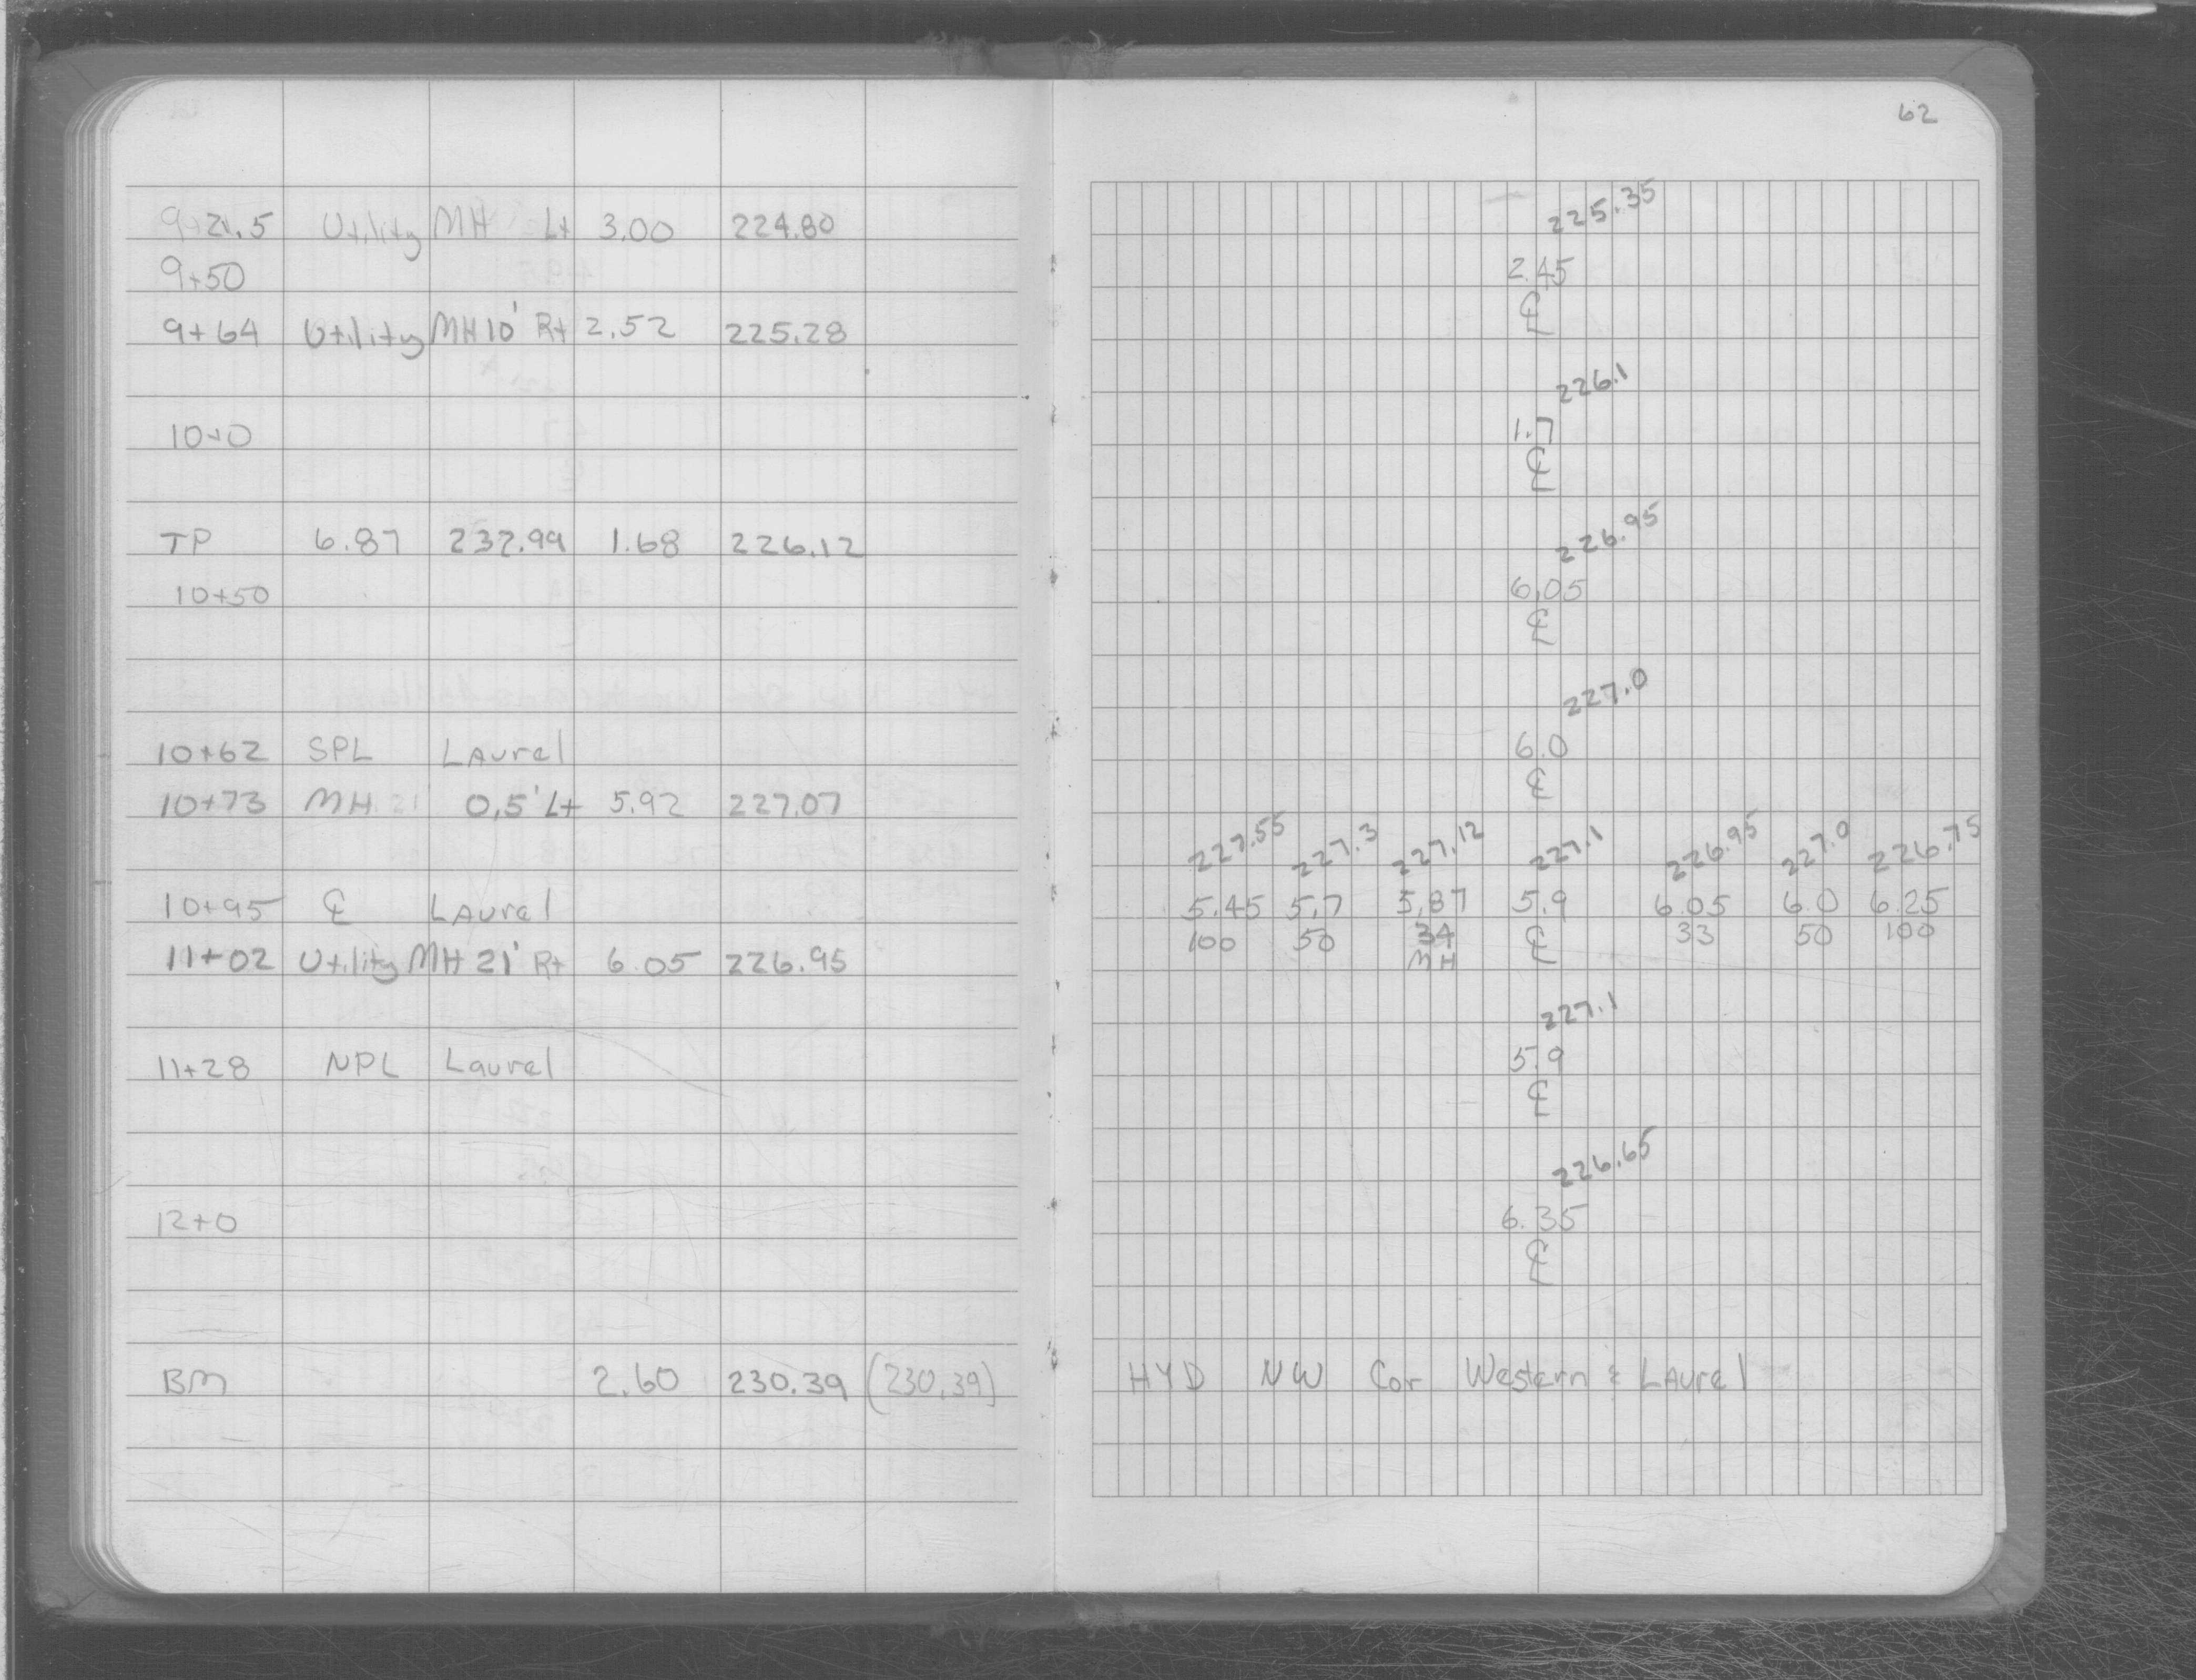 62
9+21.5 Utility MH Lt 3.00 224.80
9+50
9+64 Utility MH 10' Rt 2.52 225.28
10+0
TP 6.87 232.99 1.68 226.12
10+50
10+62 SPL Laurel
10+73 MH 0.5' Lt 5.92 227.07
10+95 ℄ Laurel
11+02 Utility MH 21' Rt 6.05 226.95
11+28 NPL Laurel
12+0
BM 2.60 230.39 (230.39)
225.35
2.45
℄
226.1
1.7
℄
226.95
6.05
℄
227.0
6.0
℄
227.55 227.3 227.12 227.1 226.95 227.0 226.75
5.45 5.7 5.87 5.9 6.05 6.0 6.25
100 50 34 ℄ 33 50 100
MH
227.1
5.9
℄
226.65
6.35
℄
HYD NW Cor Western & Laurel